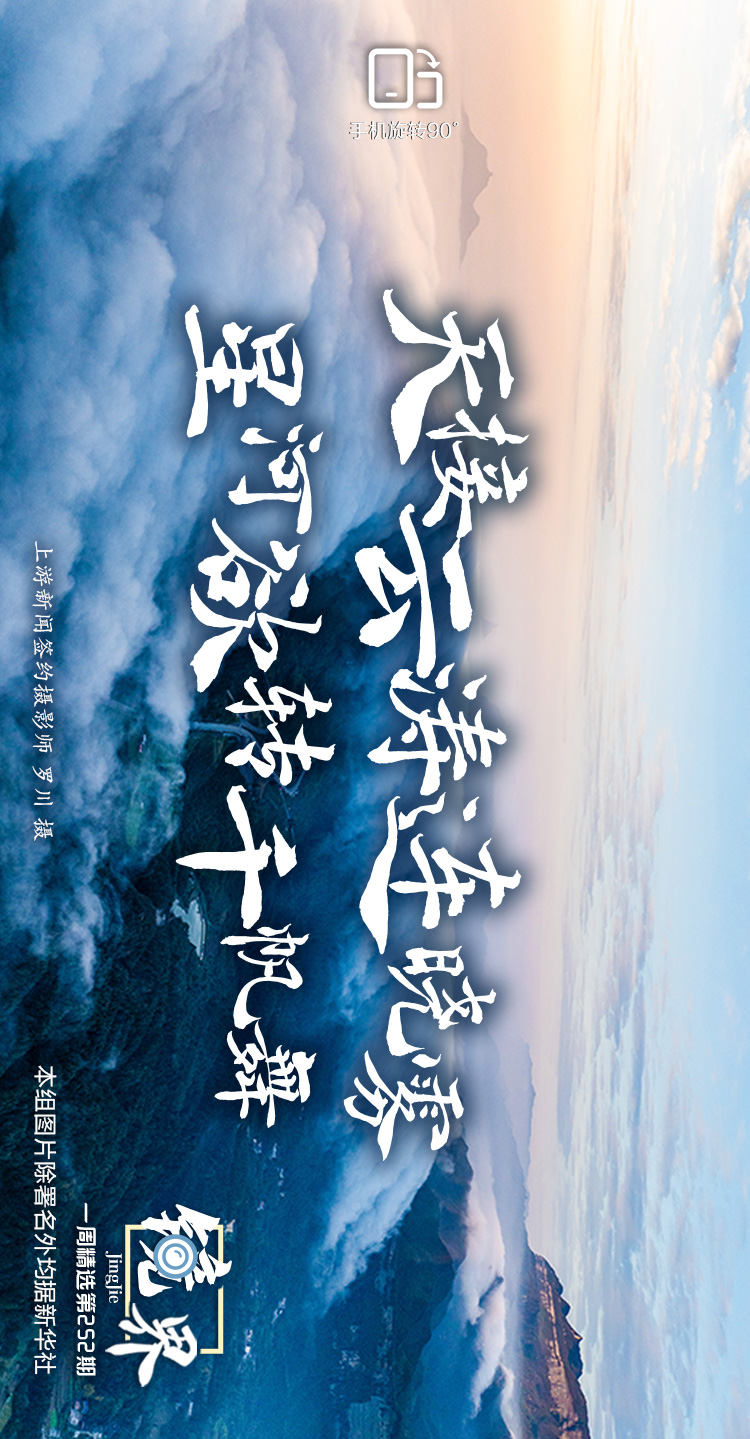 手机旋转90°
天接云涛连晓雾
星河欲转千帆舞
上游新闻签约摄影师 罗川 摄
镜界
JingJie
一周精选第252期
本组图片除署名外均据新华社